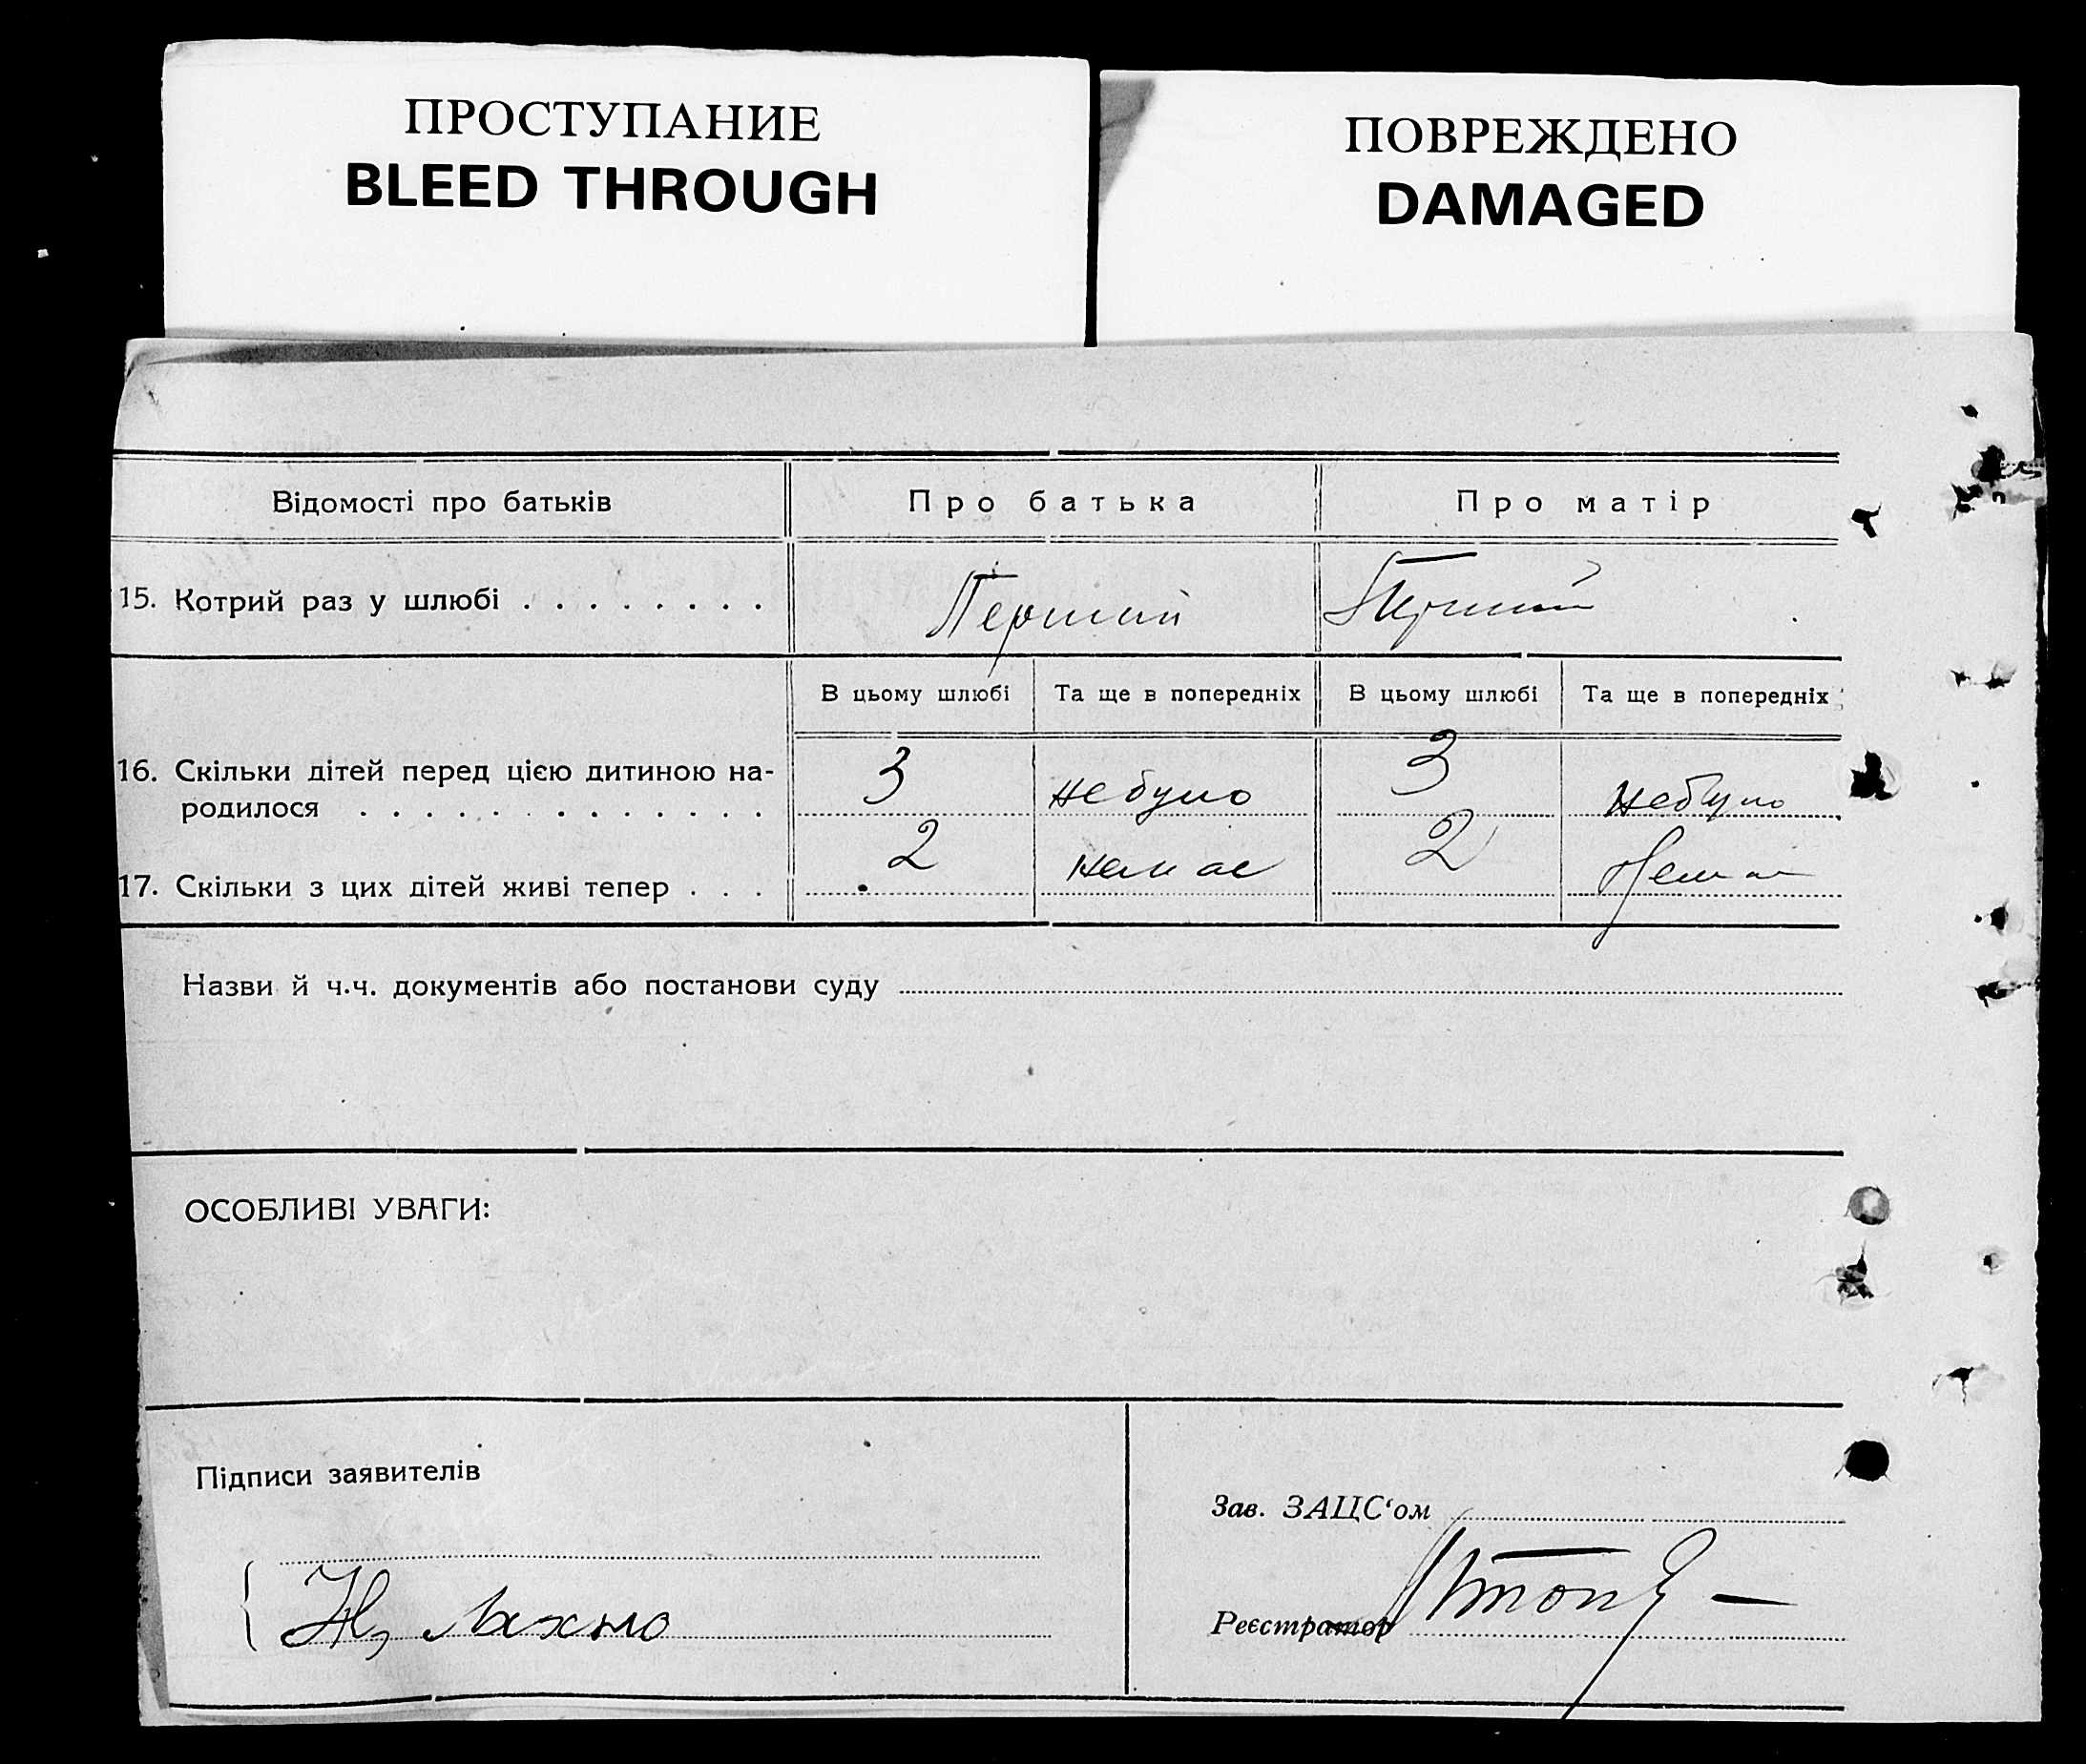 ПРОСТУПАНИЕ
BLEED THROUGH
ПОВРЕЖДЕНО
DAMAGED
Відомості про батьків Про батька Про матір
15. Котрий раз у шлюбі . . . . . . . . Перший Перший
В цьому шлюбі Та ще в попередніх В цьому шлюбі Та ще в попередніх
16. Скільки дітей перед цією дитиною на-
родилося . . . . . . . . . . . . . 3 небуло 3 небуло
17. Скільки з цих дітей живі тепер . . . 2 немає 2 Нема
Назви й ч.ч. документів або постанови суду
ОСОБЛИВІ УВАГИ:
Підписи заявителів
Зав. ЗАЦС‘ом
Реєстратор